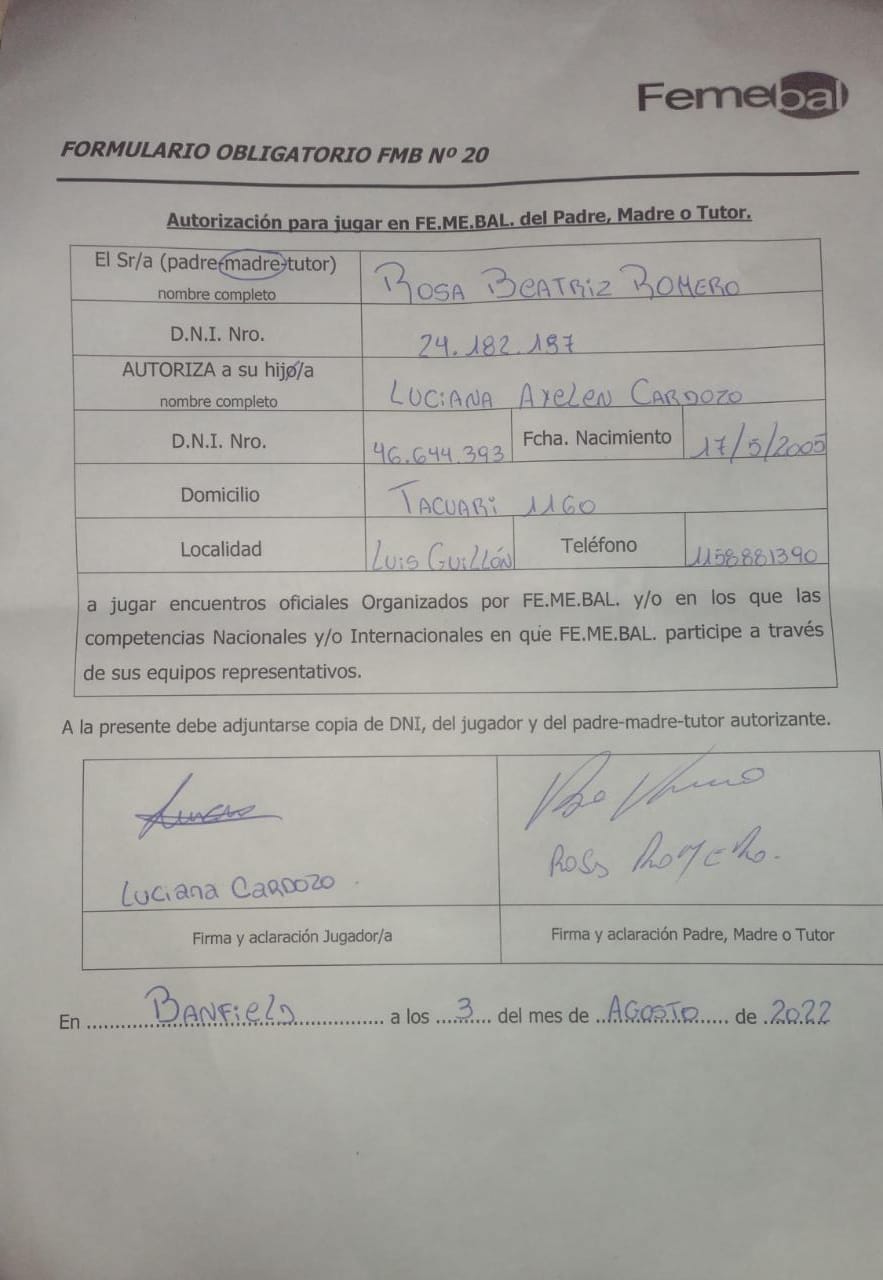 Femebal
FORMULARIO OBLIGATORIO FMB Nº 20
Autorización para jugar en FE.ME.BAL. del Padre, Madre o Tutor.
El Sr/a (padre-madre-tutor)
nombre completo
ROSA BEATRIZ ROMERO
D.N.I. Nro.
24.182.197
AUTORIZA a su hijo/a
nombre completo
LUCIANA AXELEN CARDOZO
D.N.I. Nro. 46.644.393 Fcha. Nacimiento 17/5/2005
Domicilio TACUARI 1160
Localidad LUIS GUILLÓN Teléfono 1158881390
a jugar encuentros oficiales Organizados por FE.ME.BAL. y/o en los que las
competencias Nacionales y/o Internacionales en que FE.ME.BAL. participe a través
de sus equipos representativos.
A la presente debe adjuntarse copia de DNI, del jugador y del padre-madre-tutor autorizante.
Luciana CARDOZO
ROSA ROMERO.
Firma y aclaración Jugador/a Firma y aclaración Padre, Madre o Tutor
En BANFIELD a los 3 del mes de AGOSTO de 2022